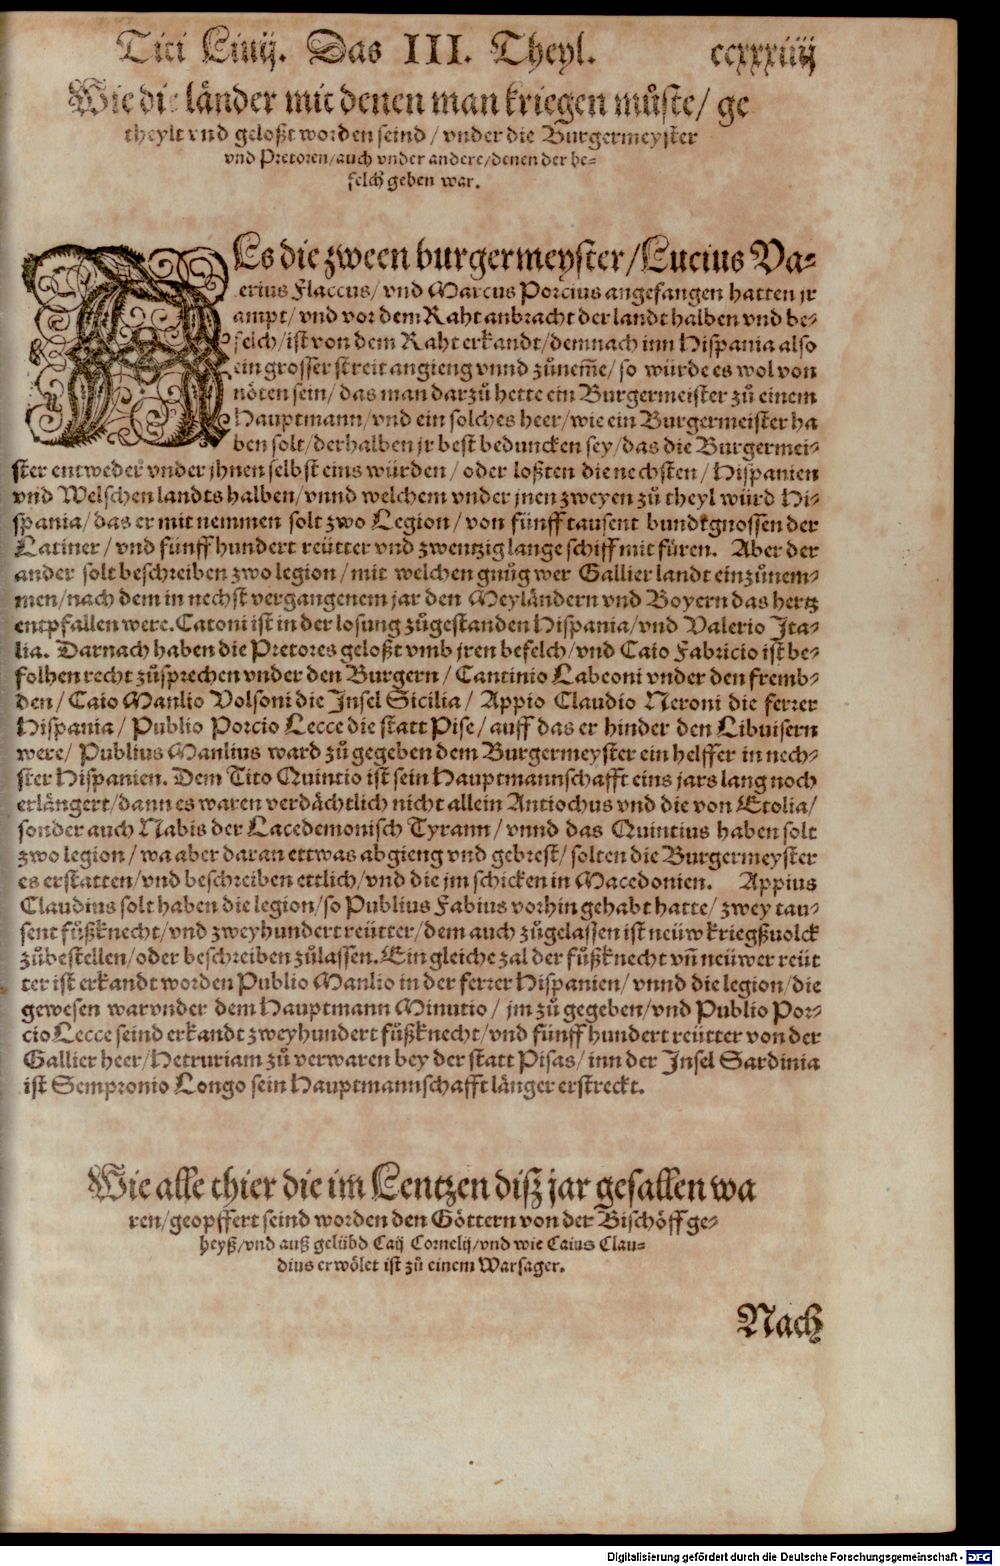 Titi Liuij. Das III. Theyl. ccxxxiiij
Wie die länder mit denen man kriegen můste/ ge
theylt vnd geloßt worden seind/ vnder die Burgermeyster
vnd Pretoren/ auch vnder andere/ denen der be-
felch geben war.
ALs die zween burgermeyster/ Lucius Va-
erius Flaccus/ vnd Marcus Porcius angefangen hatten jr
ampt/ vnd vor dem Raht anbracht der landt halben vnd be-
felch/ ist von dem Raht erkandt/ demnach inn Hispania also
ein grosser streit angieng vnnd zůnem̃e/ so würde es wol von
nöten sein/ das man darzů hette ein Burgermeister zů einem
Hauptmann/ vnd ein solches heer/ wie ein Burgermeister ha
ben solt/ derhalben jr best beduncken sey/ das die Burgermei-
ster entweder vnder jhnen selbst eins würden/ oder loßten die nechsten/ Hispanien
vnd Welschen landts halben/ vnnd welchem vnder jnen zweyen zů theyl würd Hi-
spania/ das er mit nemmen solt zwo Legion/ von fünff tausent bundtgnossen der
Latiner/ vnd fünff hundert reütter vnd zwentzig lange schiff mit füren. Aber der
ander solt beschreiben zwo legion/ mit welchen gnůg wer Gallier landt einzůnem-
men/ nach dem in nechst vergangenem jar den Meyländern vnd Boyern das hertz
entpfallen were. Catoni ist in der losung zůgestanden Hispania/ vnd Valerio Ita-
lia. Darnach haben die Pretores geloßt vmb jren befelch/ vnd Caio Fabricio ist be-
folhen recht zůsprechen vnder den Burgern/ Cantinio Labeoni vnder den fremb-
den/ Caio Manlio Volsoni die Insel Sicilia/ Appio Claudio Neroni die ferrer
Hispania/ Publio Porcio Lecce die statt Pise/ auff das er hinder den Libuisern
were/ Publius Manlius ward zů gegeben dem Burgermeyster ein helffer in nech-
ster Hispanien. Dem Tito Quintio ist sein Hauptmannschafft eins jars lang noch
erlängert/ dann es waren verdächtlich nicht allein Antiochus vnd die von Etolia/
sonder auch Nabis der Lacedemonisch Tyrann/ vnnd das Quintius haben solt
zwo legion/ wa aber daran ettwas abgieng vnd gebrest/ solten die Burgermeyster
es erstatten/ vnd beschreiben ettlich/ vnd die jm schicken in Macedonien. Appius
Claudius solt haben die legion/ so Publius Fabius vorhin gehabt hatte/ zwey tau-
sent fůßknecht/ vnd zweyhundert reütter/ dem auch zůgelassen ist neüw kriegßuolck
zůbestellen/ oder beschreiben zůlassen. Ein gleiche zal der fůßknecht vn̄ neüwer reüt
ter ist erkandt worden Publio Manlio in der ferrer Hispanien/ vnnd die legion/ die
gewesen war vnder dem Hauptmann Minutio/ jm zů gegeben/ vnd Publio Por-
cio Lecce seind erkandt zweyhundert fůßknecht/ vnd fünff hundert reütter von der
Gallier heer/ Hetruriam zů verwaren bey der statt Pisas/ inn der Insel Sardinia
ist Sempronio Longo sein Hauptmannschafft länger erstreckt.
Wie alle thier die im Lentzen diß jar gefallen wa
ren/ geopffert seind worden den Göttern von der Bischöff ge-
heyß/ vnd auß gelübd Caij Cornelij/ vnd wie Caius Clau-
dius erwölet ist zů einem Warsager.
Nach
Digitalisierung gefördert durch die Deutsche Forschungsgemeinschaft - DFG